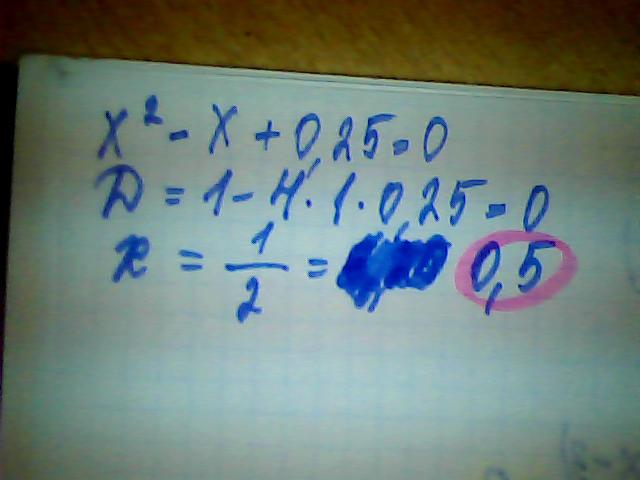 x² - x + 0,25 = 0
D = 1 - 4 · 1 · 0,25 = 0
x = 1/2 = 0,5